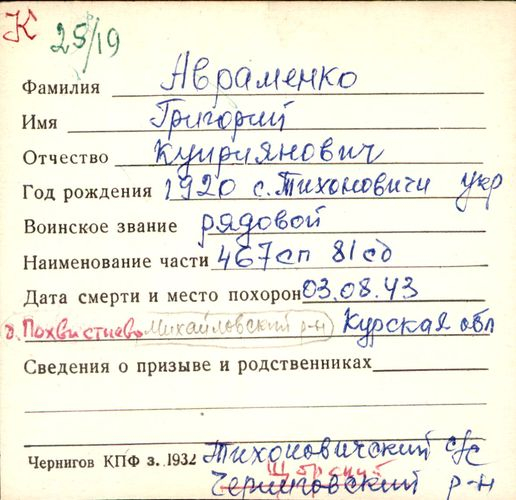 К 25/19
Фамилия Авраменко
Имя Григорий
Отчество Куприянович
Год рождения 1920 с. Тихоновичи укр
Воинское звание рядовой
Наименование части 467сп 81сд
Дата смерти и место похорон 03.08.43
д. Похвистнево Михайловский р-н Курская обл
Сведения о призыве и родственниках
Чернигов КПФ з. 1932 Тихоновичский с/с
Щорский
Черниговский р-н